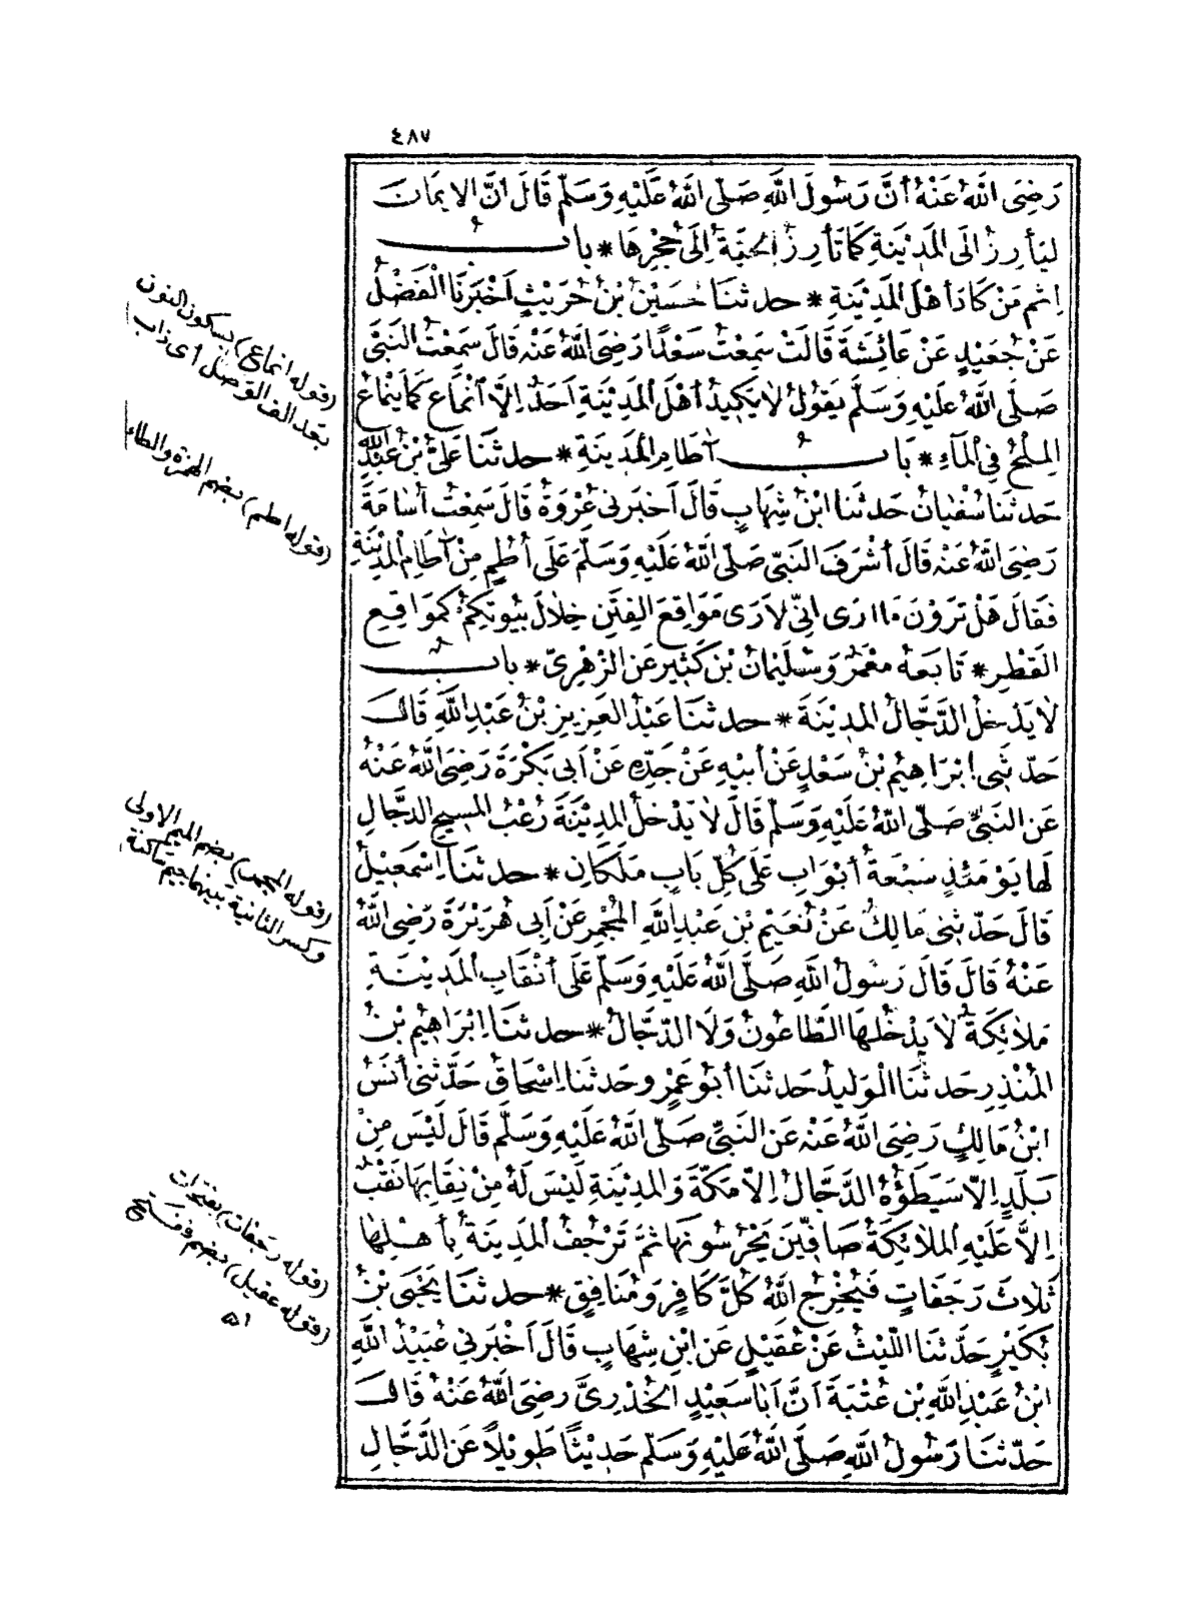 ٤٨٧
رَضِىَ اللّٰهُ عَنْهُ أَنَّ رَسُولَ اللّٰهِ صَلَّى اللّٰهُ عَلَيْهِ وَسَلَّم قَالَ اَنَّ الايمَانَ
ليَأرِزُ الَى المَدِيْنَةِ كَمَا تَأرِزُ الحَيَّةُ اِلَى حُجْرِهَا * بابُ
اِثم مَنْ كَادَ أهْلَ المَدِيْنَةِ * حدثنا حُسَيْنُ بْنُ حُرَيْثٍ اَخْبَرَنَا الْفَضْلُ
عَنْ جُعَيْدٍ عَنْ عَائِشَةَ قَالَتْ سَمِعْتُ سَعْدًا رَضِىَ اللّٰهُ عَنْهُ قَالَ سَمِعْتُ النَبِىَّ
صَلَّى اللّٰهُ عَلَيْهِ وَسَلَّمَ يَقُولُ لَا يَكِيدُ أهْلَ المَدِيْنَةِ اَحَدٌ اِلَّا انْمَاعَ كَمَا يَنْمَاعُ
المِلْحُ فِى المَآءِ * بَابُ آطَامِ المَدِيْنَةِ * حدثنَا عَلِىُّ بْنُ عَبْدِ اللّٰهِ
حَدثنَا سُفْيَانُ حَدثنا ابْنُ شِهَابٍ قَالَ اَخبَرَنى عُرْوَةُ قَالَ سَمِعْتُ أسَامَةَ
رَضِىَ اللّٰهُ عَنْهُ قَالَ أشْرَفَ النَبِىّ صَلّى اللّٰهُ عَلَيْهِ وَسَلَّمَ عَلَى أُطُمٍ مِنْ اٰطَامِ المَدِيْنَةِ
فَقَالَ هَلْ تَرَوْنَ مَا ارَى اِنّى لَارَى مَوَاقِعَ الفِتَنِ خِلَالَ بُيُوتِكُمْ كَموَاقِعِ
القَطْرِ * تَابَعَهُ مَعْمَرٌ وَسُلَيْمانُ بْنُ كَثِيرٍ عَنِ الزُهْرِىّ * بابُ
لَا يَدْخلُ الدَّجَّالُ المَدِيْنَةَ * حدثنا عَبْدُ العَزِيزِ بْنُ عَبْدِ اللّٰهِ قَالَ
حَدّثَنِى اِبْرَاهِيْمُ بْنُ سَعْدٍ عَنْ أبِيْهِ عَنْ جَدِّهِ عَنْ اَبِى بَكْرَةَ رَضِىَ اللّٰهُ عَنْهُ
عَنِ النَبِىِّ صَلّى اللّٰهُ عَلَيْهِ وَسَلّم قَالَ لَا يَدْخلُ المَدِيْنَةَ رُعْبُ المَسِيحِ الدجَّالِ
لَهَا يَوْمَئِذٍ سَبْعَةُ أبْوَابٍ عَلَى كُلِّ بَابٍ مَلَكَانِ * حدثنَا اِسْمٰعِيلُ
قَالَ حَدّثنى مَالِكٌ عَنْ نُعَيْمِ بْنِ عَبْدِ اللّٰهِ المُجْمِرِ عَنْ اَبِى هُرَيْرَةَ رَضِى اللّٰهُ
عَنْهُ قَالَ قَالَ رَسُولُ اللّٰهِ صَلّى اللّٰهُ عَلَيْهِ وَسَلّم عَلَى اَنْقَابِ المَدِيْنَةِ
مَلَائِكَةٌ لَا يَدْخُلُهَا الطّاعُونُ وَلَا الدّجَّالُ * حدثنَا اِبْرَاهِيْمُ بْنُ
المُنْذِرِ حَدثنَا الْوَلِيدُ حَدثنَا أبُو عَمْرٍ وحَدثنا اِسْحَاقُ حَدَّثنى أنَسُ
ابْنُ مَالِكٍ رَضِىَ اللّٰهُ عَنْهُ عَنِ النَبِىِّ صَلّى اللّٰهُ عَلَيْهِ وَسَلّمَ قَالَ لَيْسَ مِنْ
بَلَدٍ اِلّا سَيَطَؤُهُ الدَّجَّالُ اِلّا مَكّةَ وَالمدِيْنَةِ لَيْسَ لَهُ مِنْ نِقَابِهَا نَقْبٌ
اِلَّا عَلَيْهِ المَلَائِكَةُ صَافّيْنَ يَحْرُسُونَهَا ثُمَّ تَرْجُفُ المَدِينَةُ بِأهْلِهَا
ثَلَاثَ رَجَفَاتٍ فَيُخْرِجُ اللّٰهُ كُلَّ كَافِرٍ وَمُنَافِقٍ * حدثنَا يَحْيَى بْنُ
بُكَيْرٍ حَدَّثنَا اللّيْثُ عَنْ عُقَيْلٍ عَنِ ابْنِ شِهَابٍ قَالَ اَخْبَرَنِي عُبَيْدُ اللّٰهِ
ابْنُ عَبْدِ اللّٰهِ بْنِ عُتْبَةَ اَنَّ اَبَا سَعِيْدٍ الخُدْرِىَّ رضِىَ اللّٰهُ عَنْهُ قَالَ
حَدّثنَا رَسُولُ اللّٰهِ صَلّى اللّٰهُ عَلَيْهِ وَسَلّم حَدِيْثًا طَوِيْلًا عَنِ الدَّجَّالِ
(قوله انماع) بسكون النون
بعد الف الوصل أى ذاب
(قوله اطم) بضم الهمزة والطاء
(قوله المجمر) بضم الميم الاولى
وكسر الثانية بينهما جيم ساكنة
(قوله رجفات) بفتحات
(قوله عقيل) بضم ففتح
اه